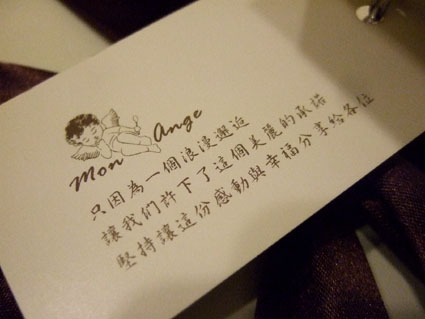 Mon Ange
只因為一個浪漫邂逅
讓我们許下了這個美麗的承諾
堅持讓這份感動與幸福分享給各位